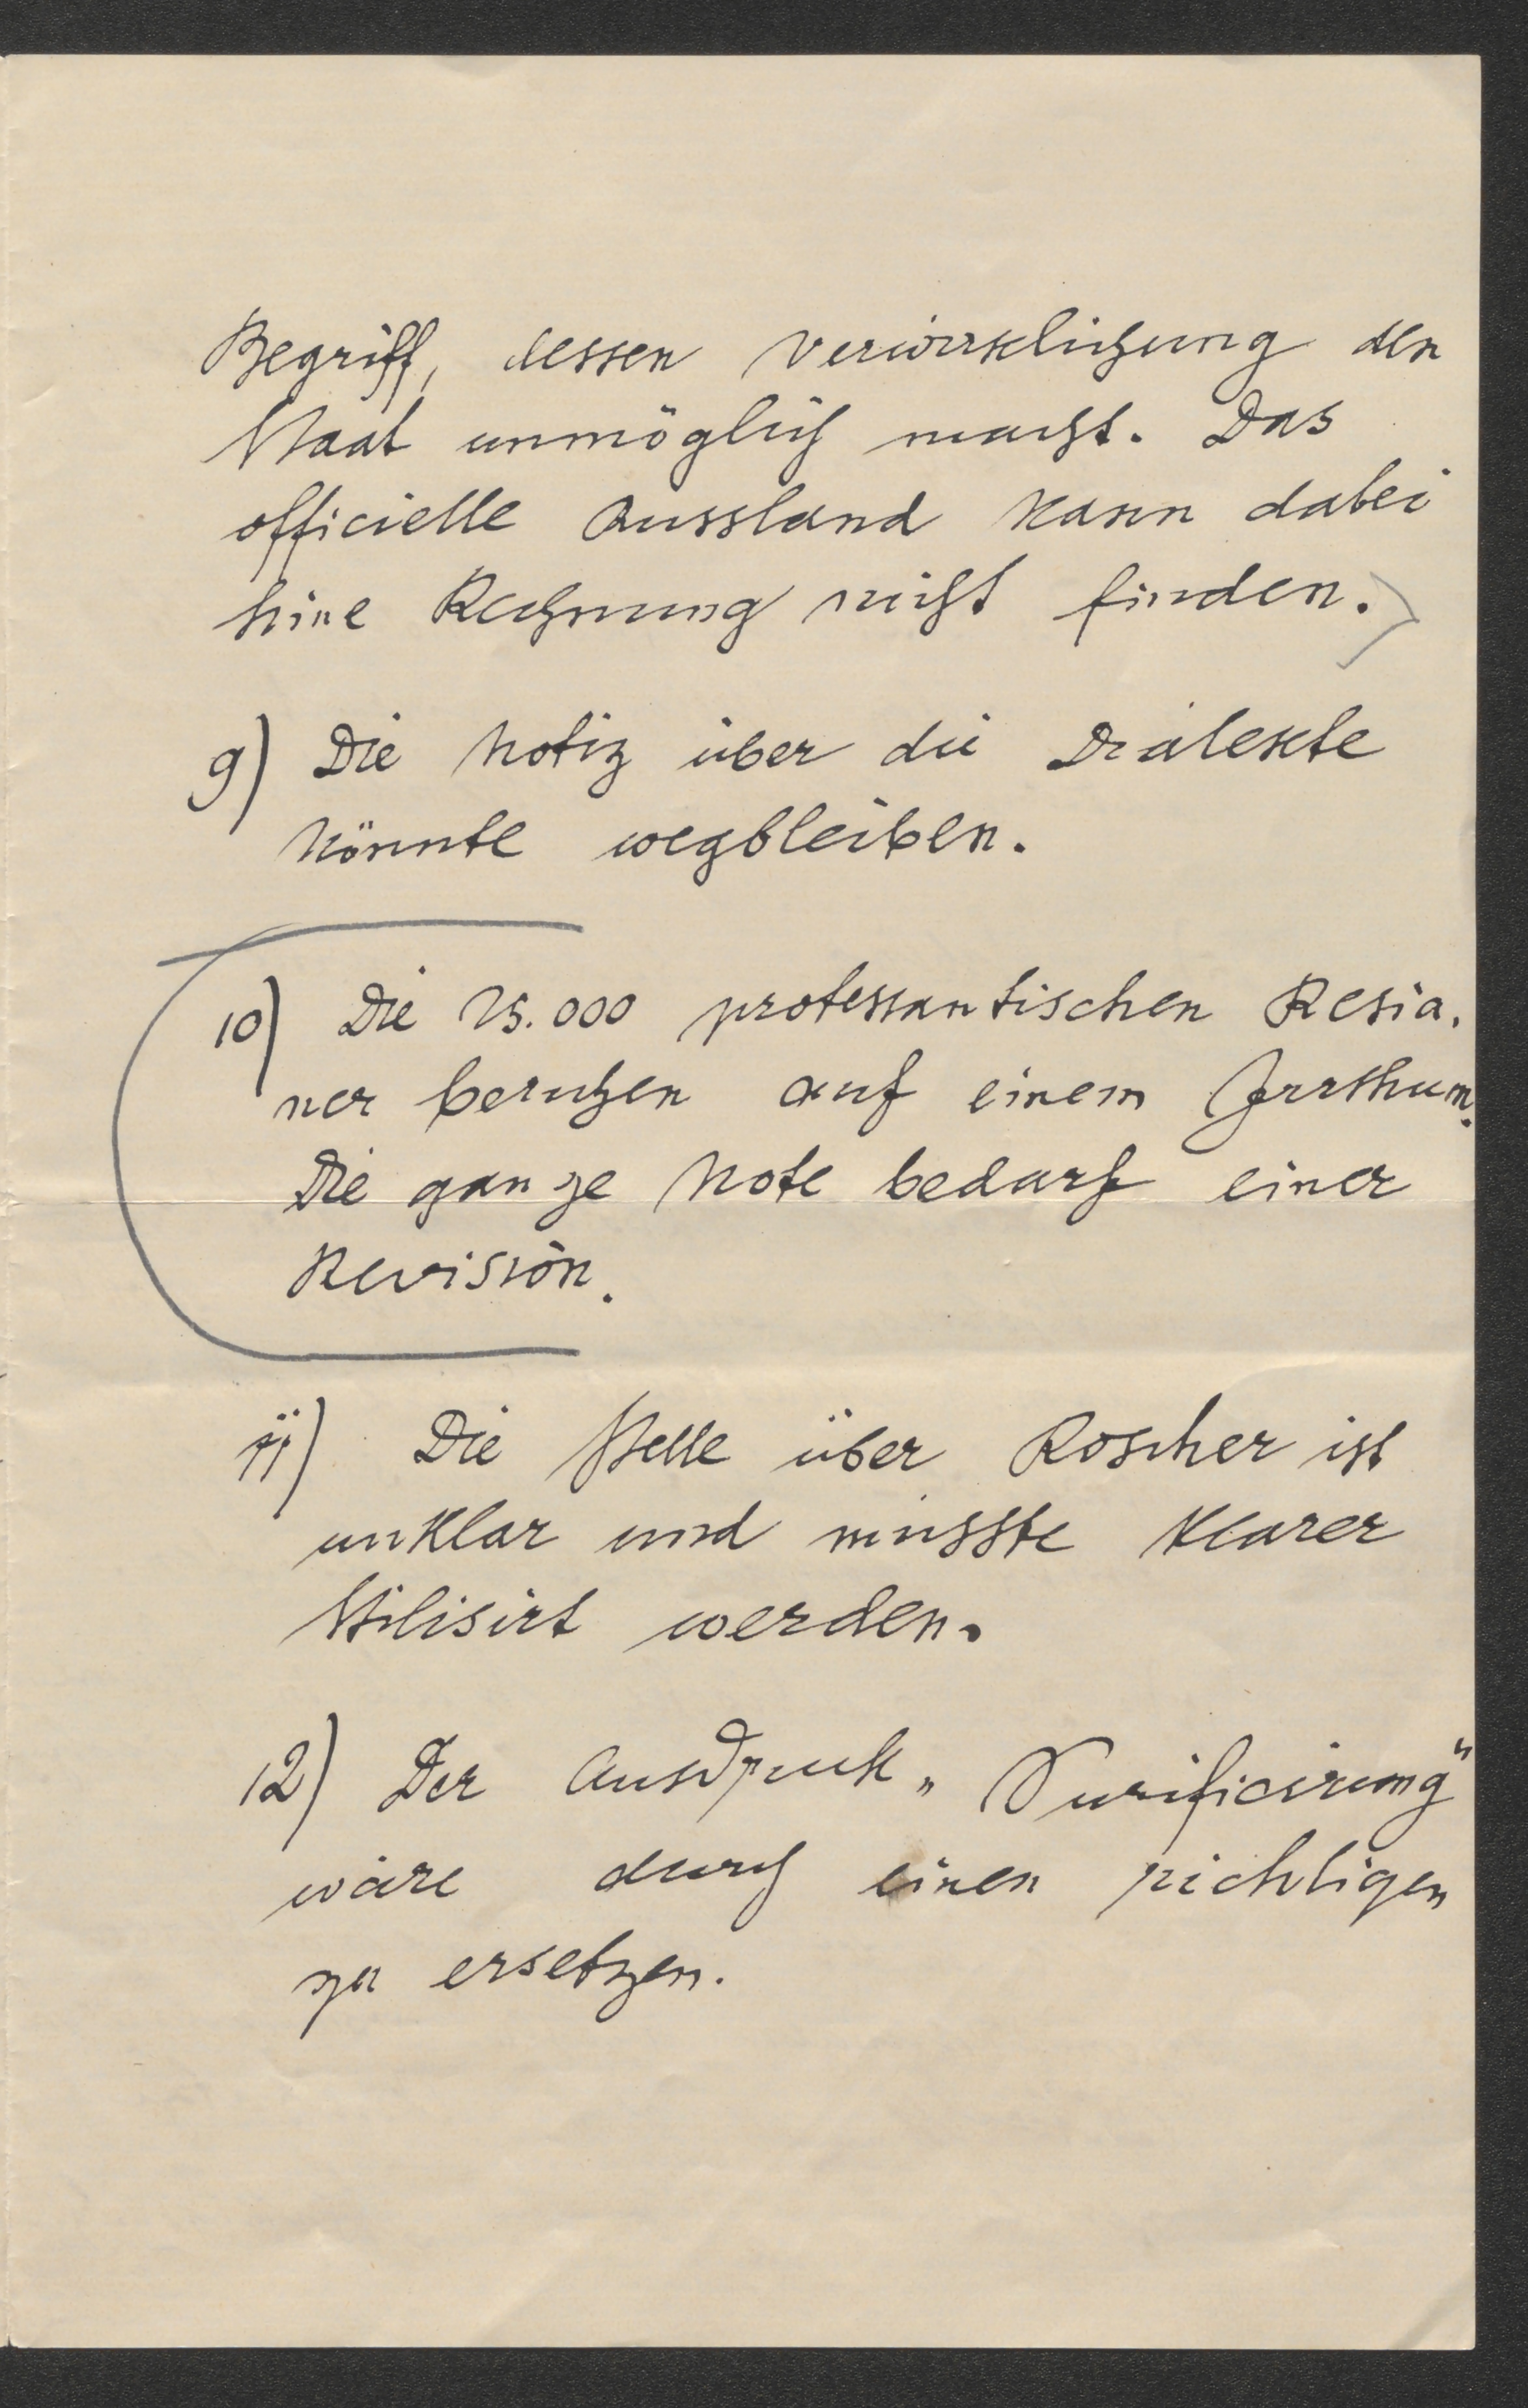 Begriff, dessen Verwirklichung den
Staat unmöglich macht. Das
officielle Aussland kann dabei
seine Rechnung nicht finden.
9) Die Notiz über die Dialekte
könnte wegbleiben.
10) Die 25.000 protestantischen Resia-
ner beruhen auf einem Irrthum.
Die ganze Note bedarf einer
Revision.
11) Die Stelle über Roscher ist
unklar und müsste klarer
stilisirt werden.
12) Der Ausdruck „Purificirung“
wäre durch einen richtigen
zu ersetzen.